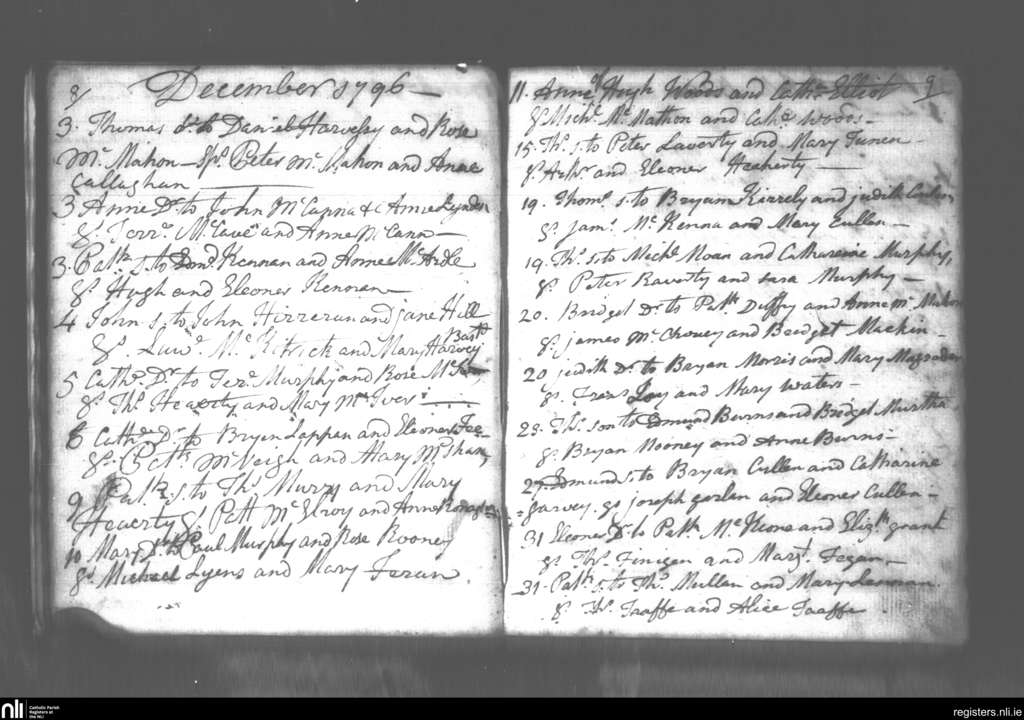 8
December 1796
3. Thomas s. to Daniel Harvessy and Rose
Mc. Mahon - Sps. Peter Mc. Mahon and Anne
Callaghan
3 Anne Dr. to John McCanna & Anne Lynch
Sp. Terre. McCave and Anne McCann
3. Patk. s. to Edmd. Kennan and Anne McArdle
Sp. Hugh and Eleoner Kennan
4 John s. to John and Jane Hill
Sp. Lawe. McKitrick and Mary Harvey
Bastd
5 Cathe. Dr. to Tere. Murphy and Rose
Sp. Ths. Heaverty and Mary McIver
6 Cathe. Dr. to Bryen Lappan and Eleoner
Sp. Patk. McVeigh and Mary McShan
9 Patk. s. to Ths. Murry and Mary
Heaverty Sp. Patt McElroy and Anne
10. Mary Dr. to Paul Murphy and Rose Rooney
Sp. Michael Lyens and Mary Feran.
9
11. Anne of Hugh Woods and Cathe. Elliot
Sp. Michl. Mc Mathon and Cathe. Woods
15. Ths. s. to Peter Laverty and Mary
Sp. Arthr. and Eleoner Heaherty
19. Thoms. s. to Bryan and Judith
Sp. Jams. McKenna and Mary Cullen
19. Ths. s. to Michl. Noan and Catharine Murphy,
Sp. Peter Raverty and Sara Murphy
20. Bridget Dr. to Patk. Duffy and Anne Mc. Mahon
Sp. James McChoney and Bridget Mackin
20 Judith Dr. to Bryan Morris and Mary
Sp. Frans. Loy and Mary Waters
23. Ths. son to Edmund Burns and Bridget Murtha
Sp. Bryan Mooney and Anne Burns
27. Edmund s. to Bryan Cullen and Catharine
Garvey. Sp. Joseph and Eleoner Cullen
31 Eleoner Dr. to Patk. McKeone and Elizth. Grant
Sp. Ths. Finigen and Margt. Fegan
31. Patk. s. to Ths. Mullen and Mary Lennan
Sp. Ths. Taaffe and Alice Taaffe
nli Catholic Parish
Registers at
the NLI
registers.nli.ie